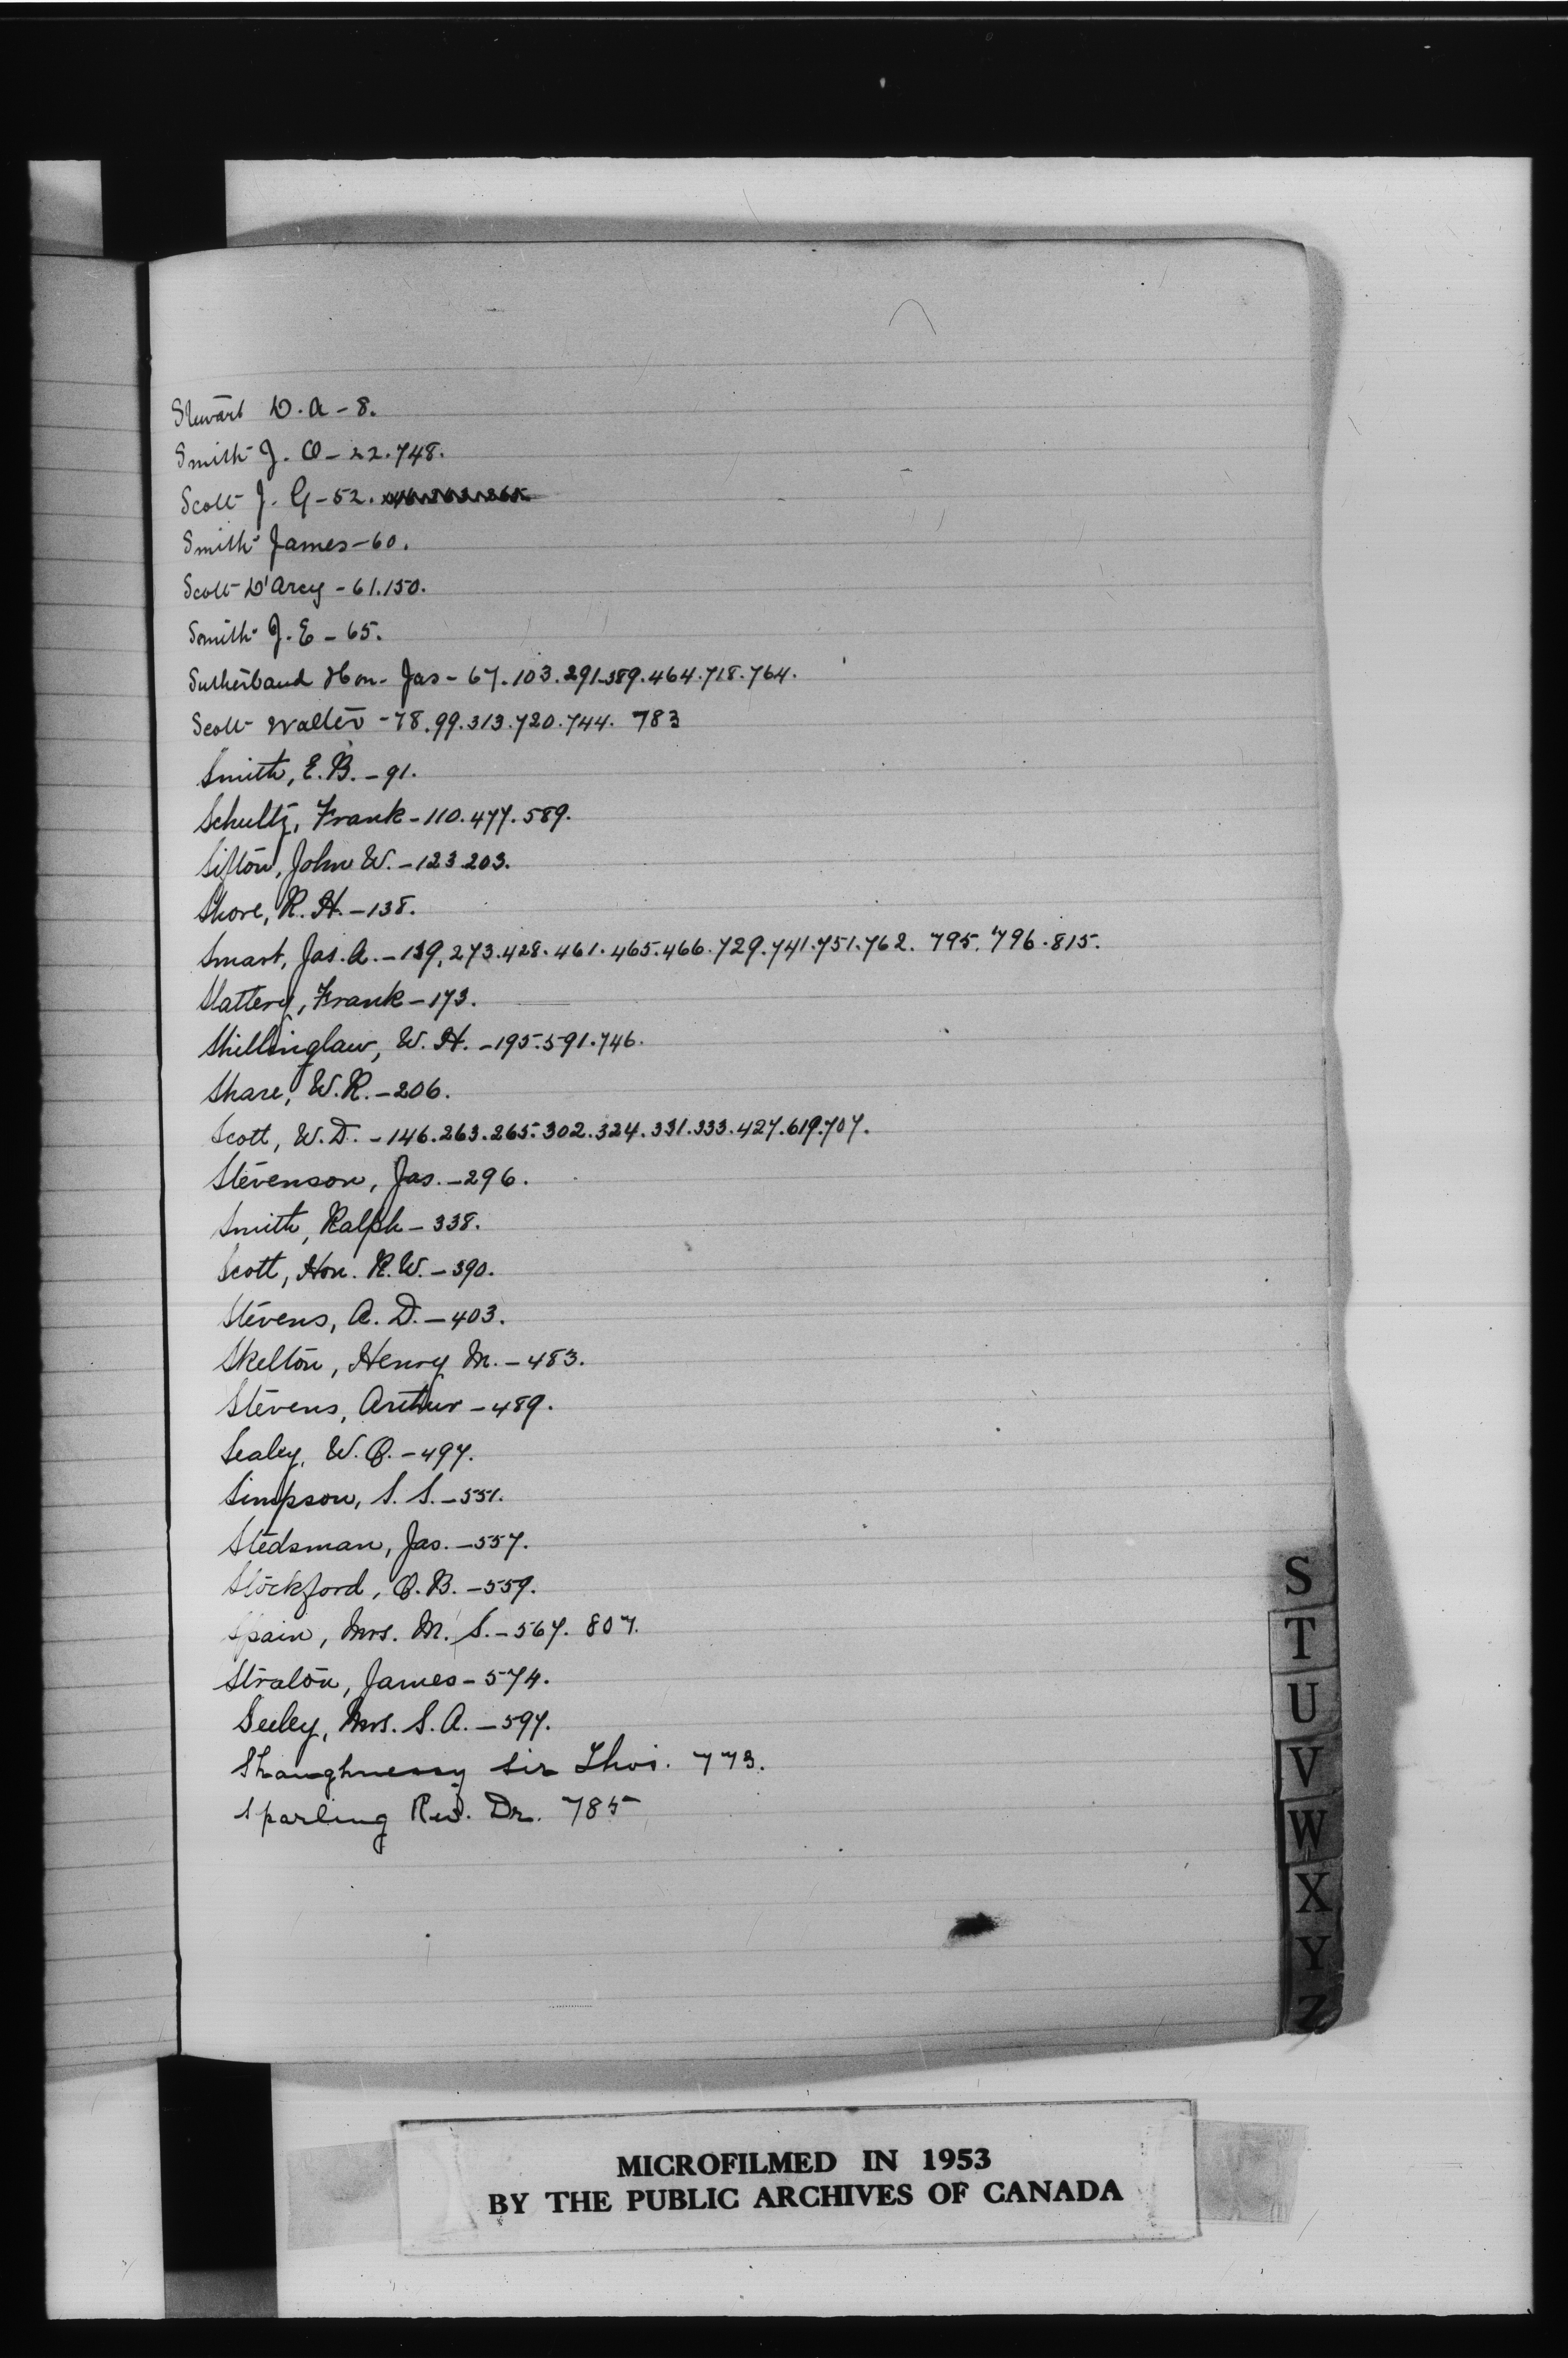 Stewart D. A - 8.
Smith J. O - 22. 748.
Scott J. G - 52. 146.263.265
Smith James - 60.
Scott D'Arcy - 61.150.
Smith J. E - 65.
Sutherland Hon. Jas - 67.103.291.389.464.718.764.
Scott Walter - 78.99.313.720.744. 783
Smith, E. B. - 91.
Schultz, Frank - 110.477.589.
Sifton, John W. - 123.203.
Shore, R. H. - 138.
Smart, Jas. A. - 139, 273.428.461.465.466.729.741.751.762. 795. 796.815.
Slattery, Frank - 173.
Shillinglaw, W. H. - 195.591.746.
Share, W. R. - 206.
Scott, W. D. - 146.263.265.302.324.331.333.427.619.707.
Stevenson, Jas. - 296.
Smith, Ralph - 338.
Scott, Hon. R. W. - 390.
Stevens, A. D. - 403.
Skelton, Henry M. - 483.
Stevens, Arthur - 489.
Sealey, W. O. - 497.
Simpson, S. S. - 551.
Stedsman, Jas. - 557.
Stockford, O. B. - 559.
Spain, Mrs. M. S. - 567. 807.
Straton, James - 574.
Seeley, Mrs. S. A. - 597.
Shaughnessy Sir Thos. 773.
Sparling Rev. Dr. 785
S
T
U
V
W
X
Y
Z
MICROFILMED IN 1953
BY THE PUBLIC ARCHIVES OF CANADA